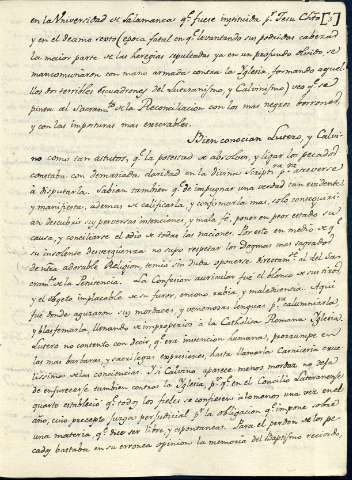 en la Universidad de Salamanca q.e fuese instituida p.r Jesu Chsto [3]
y en el decimo sexto (epoca fatal en q.e levantando sus podridas cabezas
la maior parte de las heregias sepultadas ya en un profundo olvido se
mancomunaron con mano armada contra la Iglesia formando aquel-
llos dos terribles Esquadrones del Luteranismo, y Calvinismo) veo q.e se
pinta al Sacram.to de la Reconciliacion con los mas negros borrones,
y con las imposturas mas execrables.
Bien conocian Lutero, y Calvi-
no como tan astutos, q.e la potestad de absolver, y ligar los pecados
constaba con demasiada claridad en la Divina Script.ra p.ra atreverse
à disputarla. Sabian tambien q.e de impugnar una verdad tan evidente,
y manifiesta, ademas de calificarla, y confirmarla mas, solo conseguiri-
an descubrir sus perversas intenciones, y mala fé, poner en peor estado su
causa, y conciliarse el odio de todas las naciones. Por esto en medio de q.e
su insolente desvergüenza no supo respetar los Dogmas mas sagrados
de nt̃ra adorable Religion, temió sin duda oponerse directam.te al del Sac-
ram.to de la Penitencia. La Confesion auricular fué el blanco de sus tiros,
y el objeto implacable de su furor, encono, rabia, y maledicencia. Aqui
fué donde aguzaron sus mordaces, y venenosas lenguas p.ra calumniarla,
y blasfemarla, llenando de improperios à la Catholica Romana Iglesia.
Lutero no contento con decir, q.e era invencion humana, prorrumpe en
las mas barbaras, y sacrilegas expresiones, hasta llamarla Carniceria crue-
lissima de las conciencias. Si Calvino aparece menos mordaz no dexa
de enfurecerse tambien contra la Iglesia, p.r q.e en el Concilio Lateranense
quarto estableció q.e todos los fieles se confiesen à lo menos una vez en el
año, cuio precepto juzga perjudicial p.r la obligacion q.e impone sobre
una materia, q.e dice ser libre, y espontanea. Para el perdon de los pe-
cados bastaba en su erronea opinion la memoria del Baptismo recivido,